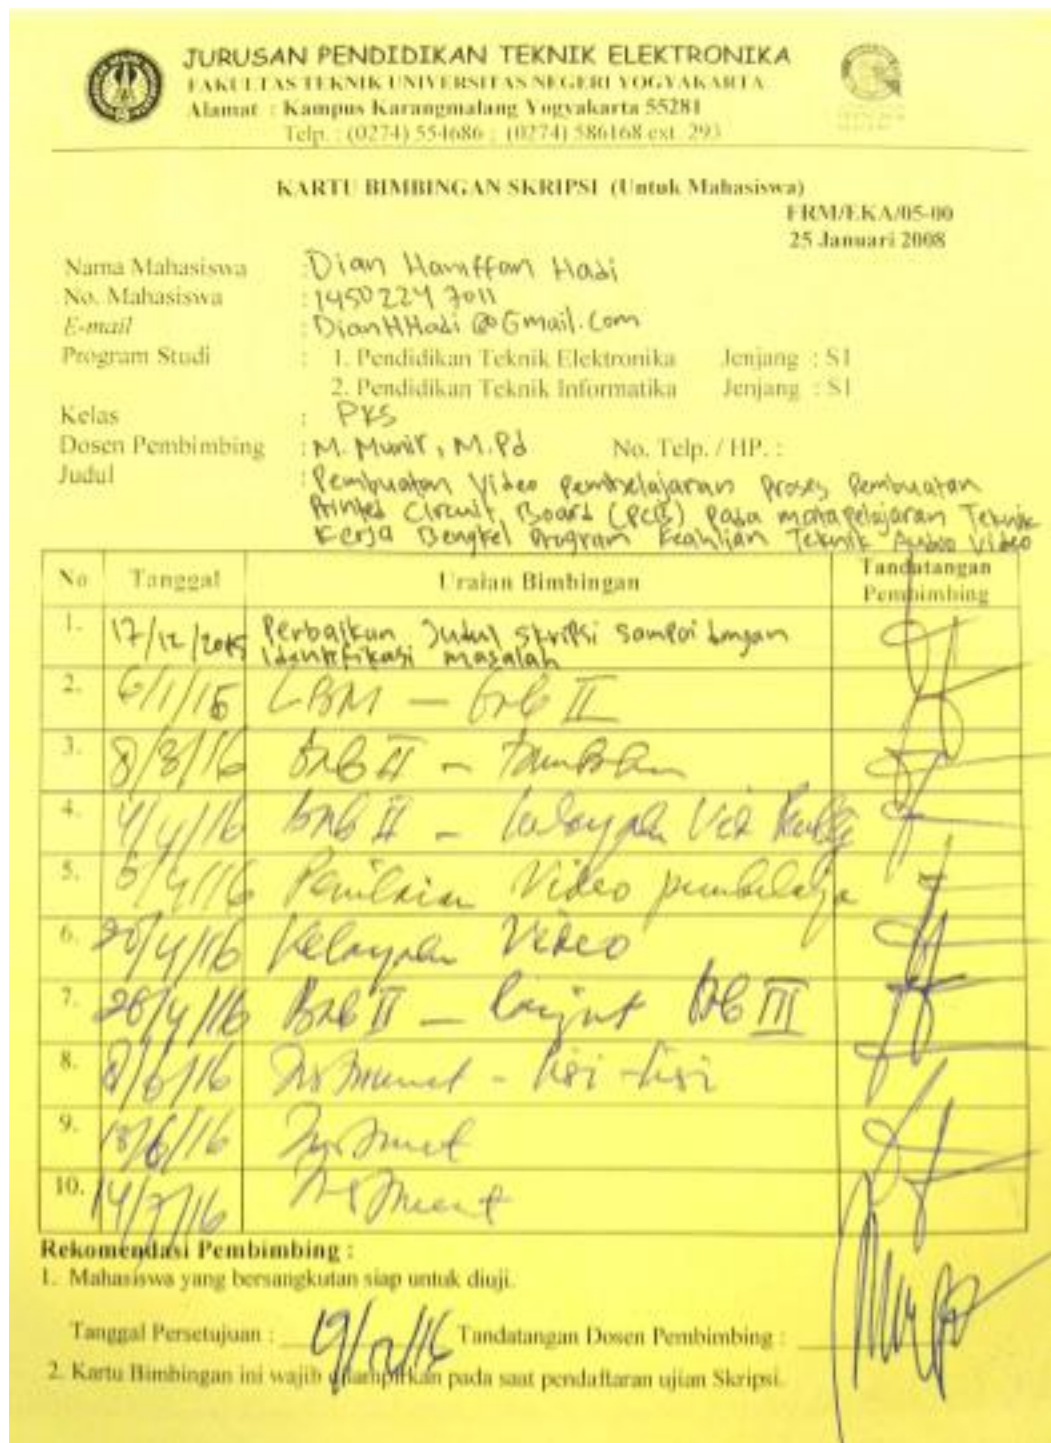 JURUSAN PENDIDIKAN TEKNIK ELEKTRONIKA
FAKULTAS TEKNIK UNIVERSITAS NEGERI YOGYAKARTA
Alamat : Kampus Karangmalang Yogyakarta 55281
Telp. : (0274) 554686 ; (0274) 586168 ext. 293
KARTU BIMBINGAN SKRIPSI (Untuk Mahasiswa)
FRM/EKA/05-00
25 Januari 2008
Nama Mahasiswa : Dian Haniffan Hadi
No. Mahasiswa : 14502247011
E-mail : DianHHadi@Gmail.com
Program Studi : 1. Pendidikan Teknik Elektronika Jenjang : S1
2. Pendidikan Teknik Informatika Jenjang : S1
Kelas : PKS
Dosen Pembimbing : M. Munir, M.Pd No. Telp. / HP. :
Judul : Pembuatan Video Pembelajaran Proses Pembuatan
Printed Circuit Board (PCB) Pada matapelajaran Teknik
Kerja Bengkel Program Keahlian Teknik Audio Video
No Tanggal Uraian Bimbingan Tandatangan Pembimbing
1. 17/12/2015 Perbaikan Judul skripsi sampai dengan
Identifikasi masalah
2. 6/1/15 LBM — bab II
3. 8/3/16 bab II –
4. 4/4/16 bab II –
5. 5/4/16 Penilaian Video
6. 20/4/16 Video
7. 26/4/16 Bab II — lanjut bab III
8. 8/6/16 Instrument - kisi-kisi
9. 13/6/16 Instrument
10. 14/7/16 Instrument
Rekomendasi Pembimbing :
1. Mahasiswa yang bersangkutan siap untuk diuji.
Tanggal Persetujuan : Tandatangan Dosen Pembimbing :
2. Kartu Bimbingan ini wajib dilampirkan pada saat pendaftaran ujian Skripsi.